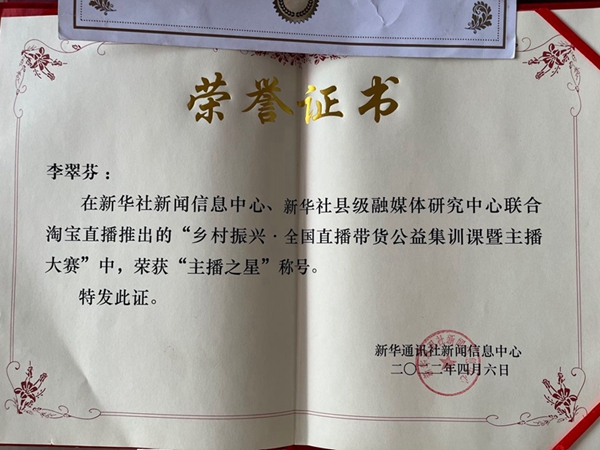 荣誉证书
李翠芬：
在新华社新闻信息中心、新华社县级融媒体研究中心联合
淘宝直播推出的“乡村振兴·全国直播带货公益集训课暨主播
大赛”中，荣获“主播之星”称号。
特发此证。
新华通讯社新闻信息中心
二〇二二年四月六日